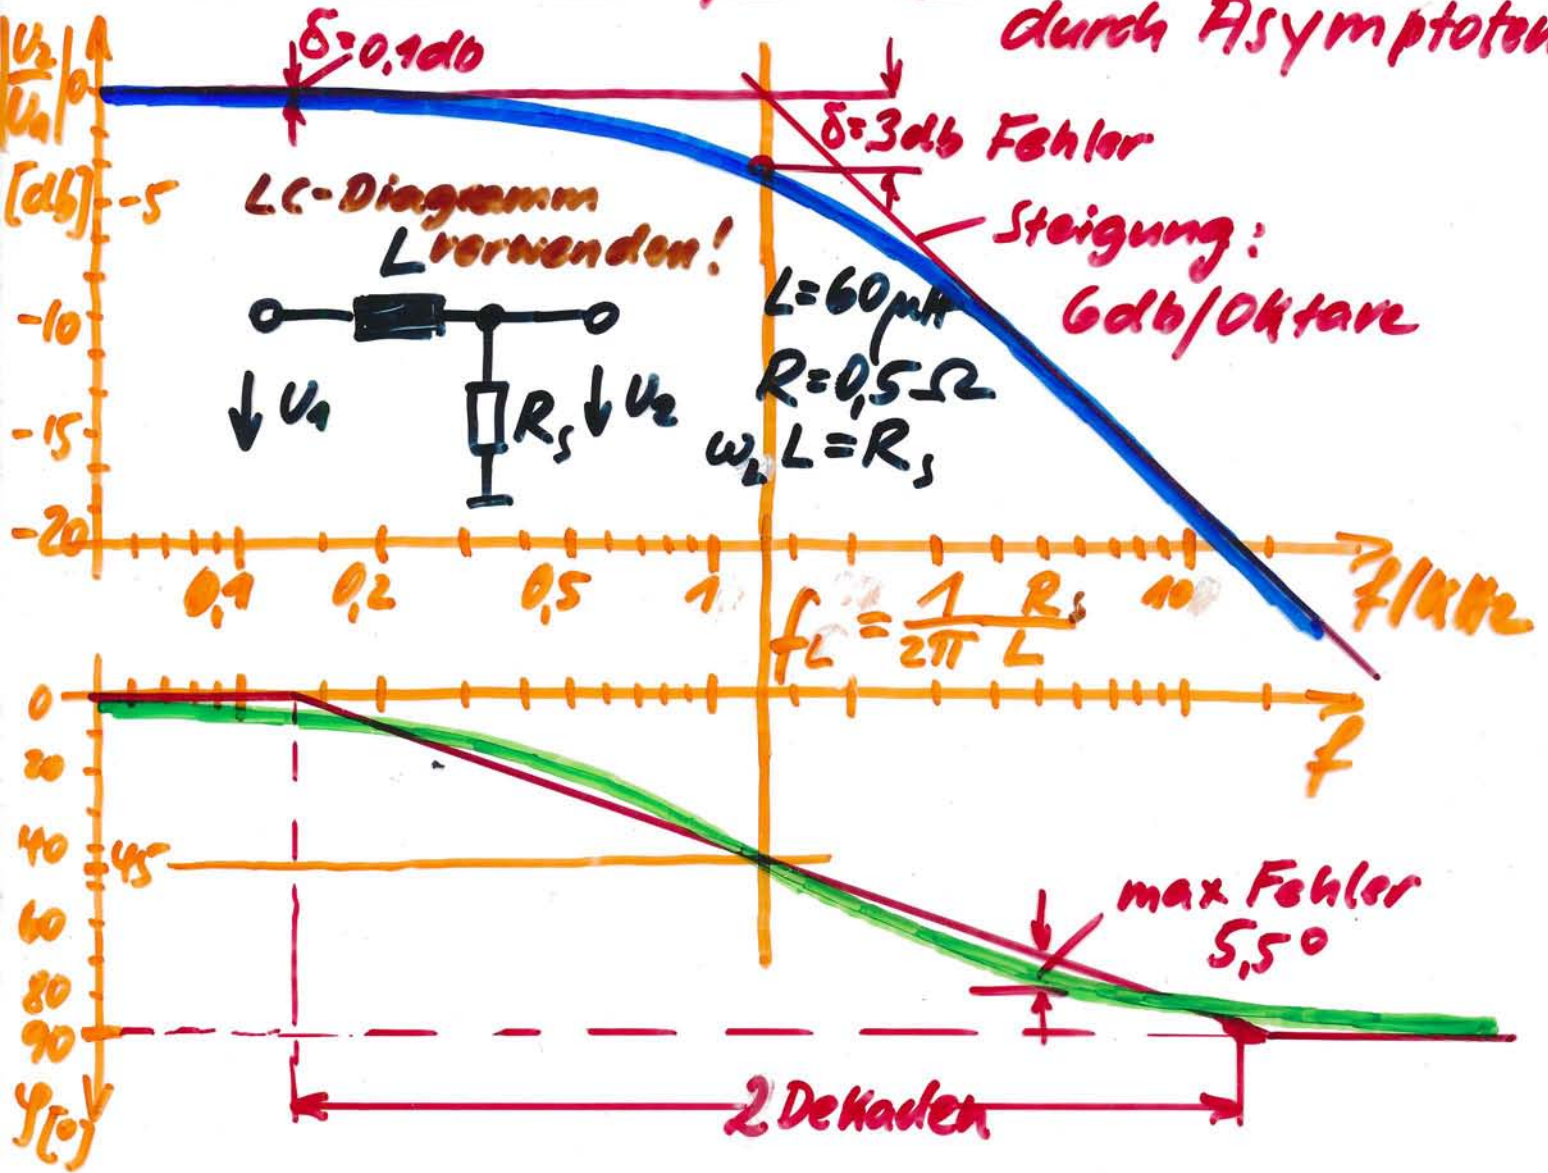 durch Asymptoten
|U₂/U₁|
[db]
δ=0,1db
0
-5
-10
-15
-20
δ=3db Fehler
Steigung:
6db/Oktave
LC-Diagramm
verwenden!
L
U₁
Rs
U₂
L=60µH
R=0,5Ω
ωL L=Rs
0,1 0,2 0,5 1 10
f/kHz
fL = 1/2π Rs/L
0
20
40
45
60
80
90
φ[°]
f
max Fehler
5,5°
2 Dekaden